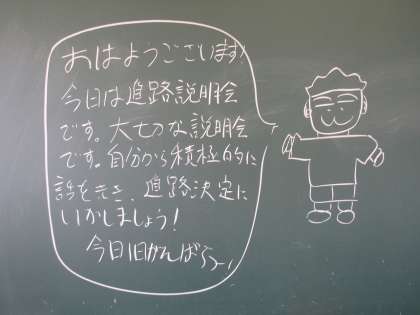 おはようございます!
今日は進路説明会
です。大切な説明会
です。自分から積極的に
話をきき、進路決定に
いかしましょう!
今日1日がんばろう